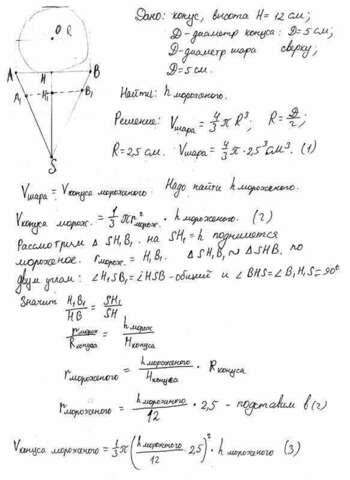 O R
Дано: конус, высота H = 12 см;
D - диаметр конуса: D = 5 см;
D - диаметр шара сверху,
D = 5 см.
A H B
A₁ H₁ B₁
S
Найти: h мороженого.
Решение: Vшара = 4/3 π R³; R = D/2;
R = 2,5 см. Vшара = 4/3 π · 2,5³ см³. (1)
Vшара = Vконуса мороженого. Надо найти h мороженого.
Vконуса морож. = 1/3 π r²морож. · h мороженого. (2)
Рассмотрим Δ SH₁B₁. на SH₁ = h поднимется
мороженое. rморож. = H₁B₁. Δ SH₁B₁ ∾ Δ SHB по
двум углам: ∠H₁SB₁ = ∠HSB - общий и ∠BHS = ∠B₁H₁S = 90°
Значит H₁B₁/HB = SH₁/SH
rморож/Rконуса = hморож/Hконуса
rмороженого = hмороженого/Hконуса · Rконуса
rмороженого = hмороженого/12 · 2,5 - подставим в (2)
Vконуса мороженого = 1/3 π (hмороженого/12 · 2,5)² · hмороженого (3)